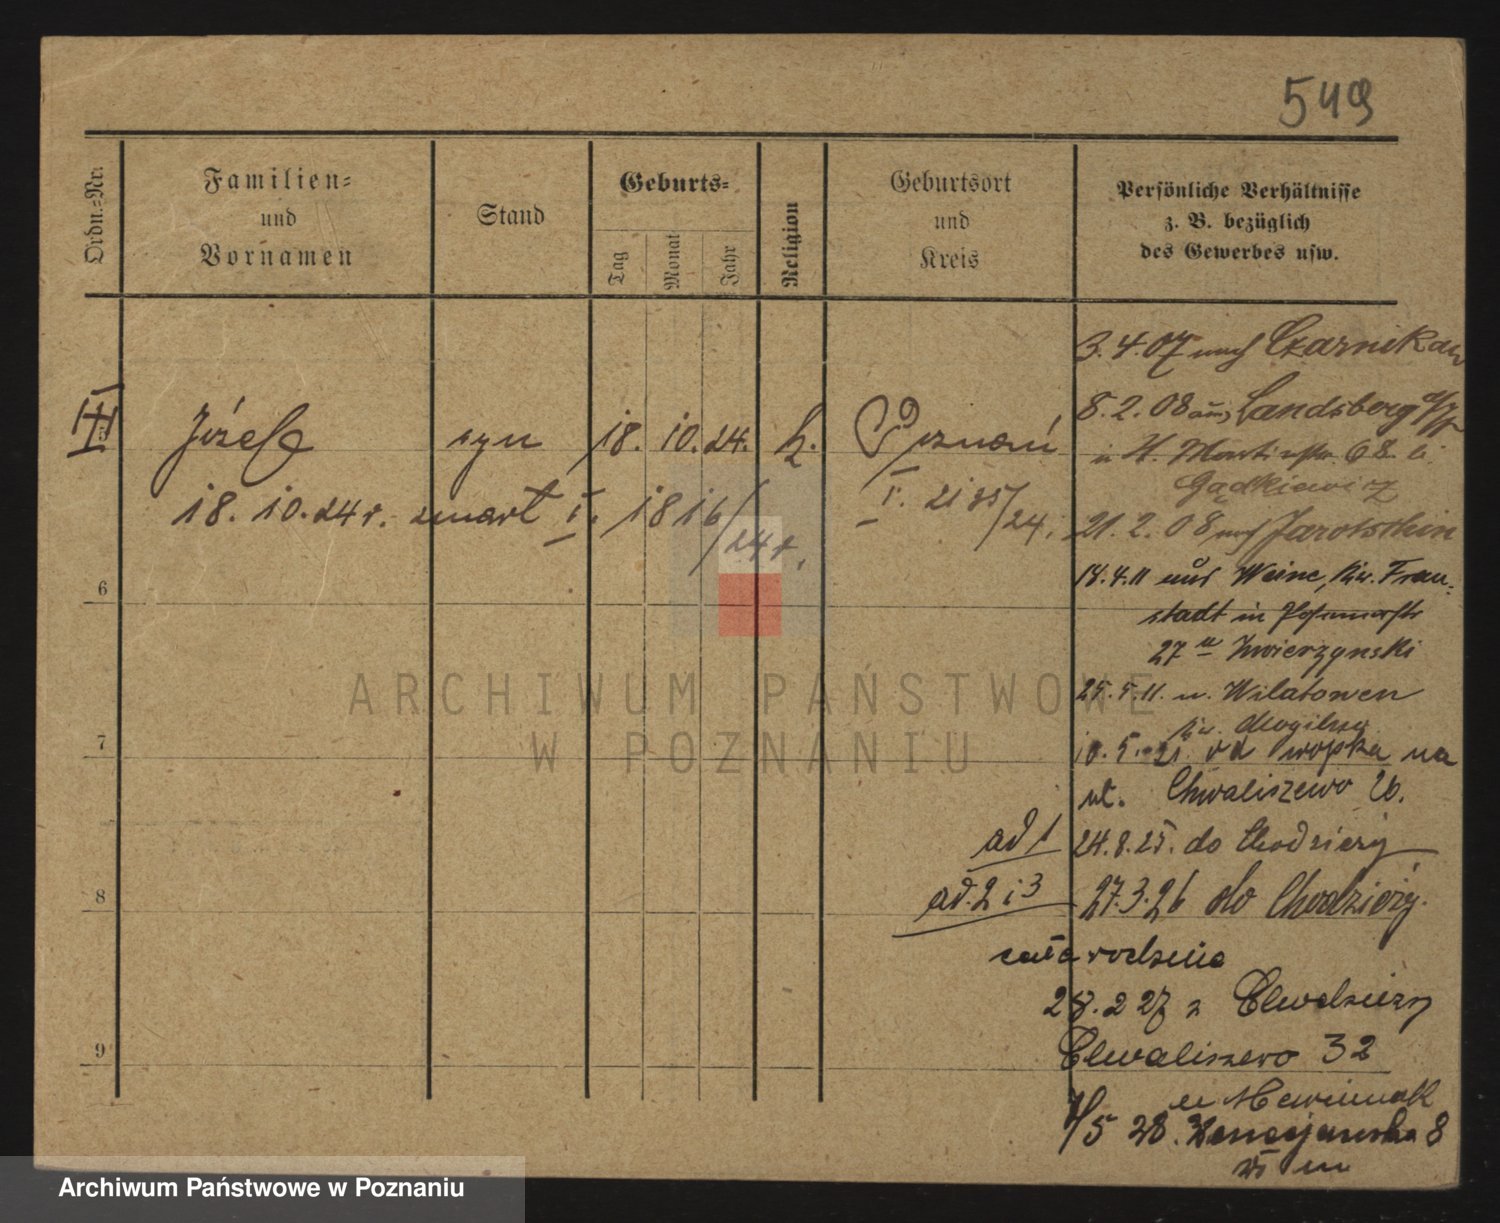 549
Ordn.-Nr.
Familien-
und
Vornamen
Stand
Geburts-
Tag
Monat
Jahr
Religion
Geburtsort
und
Kreis
Persönliche Verhältnisse
z. B. bezüglich
des Gewerbes usw.
3.4.07 nach Czarnikau
8.2.08 aus Landsberg a/W
68
Gądkiewicz
21.2.08 nach Jarotschin
III Józef syn 18. 10. 24. k. Poznań
18. 10. 24 r. zmarł I. 1816/24 r.
I. 2185/24.
18.4.11 aus Weine, Kr. Frau-
stadt in
27 Zwierzynski
25.5.11. n. Wilatowen
Kr. Mogilno
10.5.21. od wojska na
ul. Chwaliszewo 26.
ad 1 24.8.25. do Chodzieży
ad. 2 i 3 27.3.26 do Chodzieży.
cała rodzina
28.2 27 z Chodzieży
Chwaliszewo 32
1/5 28. 8
m
6
7
8
9
ARCHIWUM PAŃSTWOWE
W POZNANIU
Archiwum Państwowe w Poznaniu